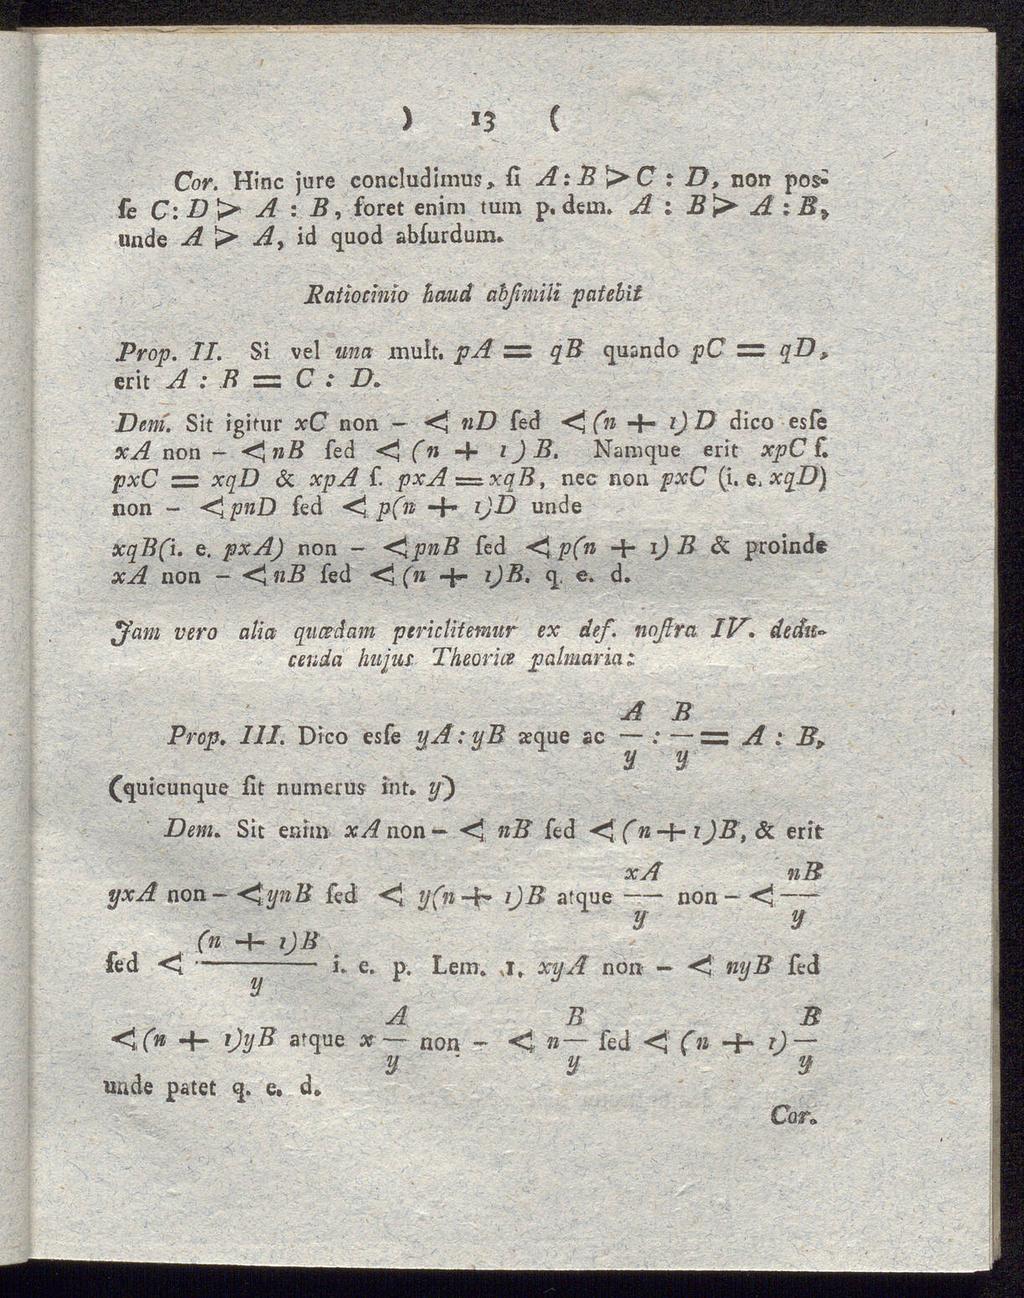 ) 13 (
Cor. Hinc jure concludimus, ſi A : B ⊳ C : D, non pos-
ſe C : D ⊳ A : B, foret enim tum p. dem. A : B ⊳ A : B,
unde A ⊳ A, id quod abſurdum.
Ratiocinio haud abſimili patebit
Prop. II. Si vel una mult. pA = qB quando pC = qD,
erit A : B = C : D.
Dem. Sit igitur xC non - ⊲ nD ſed ⊲ (n + 1) D dico esſe
xA non - ⊲ nB ſed ⊲ (n + 1) B. Namque erit xpC ſ.
pxC = xqD & xpA ſ. pxA = xqB, nec non pxC (i. e. xqD)
non - ⊲ pnD ſed ⊲ p(n + 1)D unde
xqB(i. e. pxA) non - ⊲ pnB ſed ⊲ p(n + 1) B & proinde
xA non - ⊲ nB ſed ⊲ (n + 1)B. q. e. d.
Jam vero alia quædam periclitemur ex def. noſtra IV. dedu-
cenda hujus Theoriæ palmaria:
Prop. III. Dico esſe yA : yB æque ac A/y : B/y = A : B,
(quicunque ſit numerus int. y)
Dem. Sit enim xA non - ⊲ nB ſed ⊲ (n + 1)B, & erit
yxA non - ⊲ ynB ſed ⊲ y(n + 1)B atque xA/y non - ⊲ nB/y
ſed ⊲ (n + 1)B/y i. e. p. Lem. 1. xyA non - ⊲ nyB ſed
⊲ (n + 1)yB atque x A/y non - ⊲ n B/y ſed ⊲ (n + 1) B/y
unde patet q. e. d.
Cor.